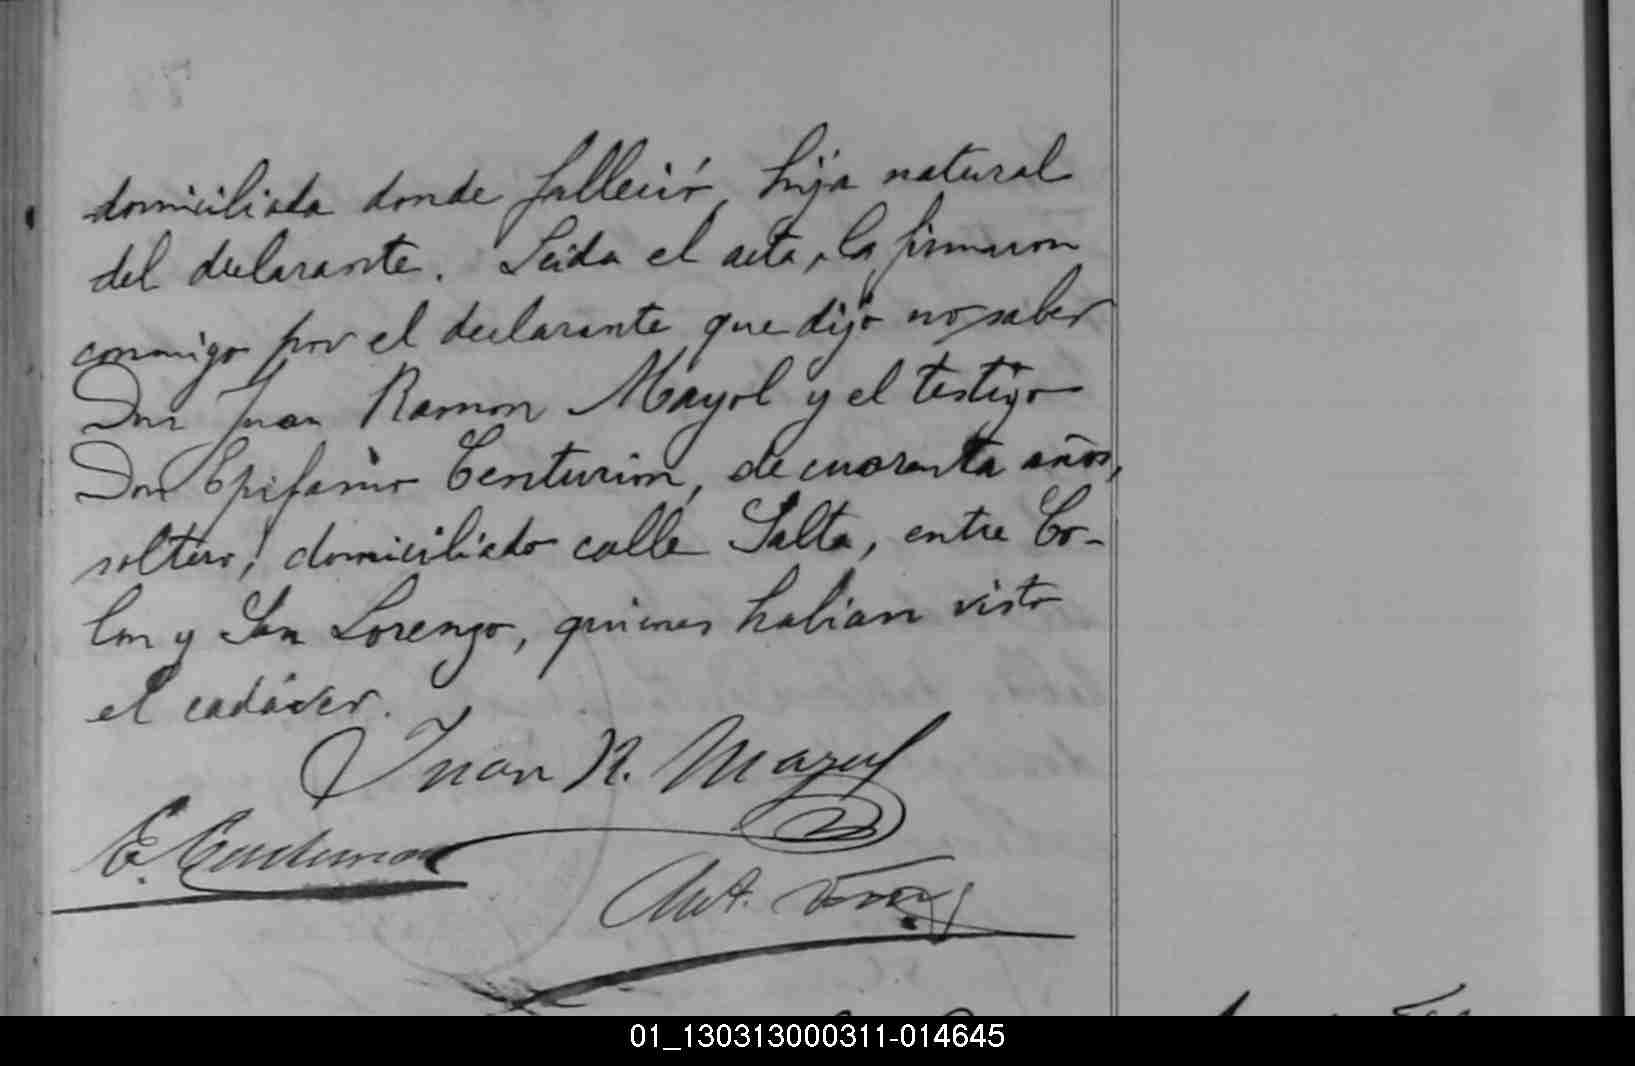 domiciliada donde falleció, hija natural
del declarante. Leida el acta, la firmaron
conmigo por el declarante que dijo no saber
Don Juan Ramon Mayol y el testigo
Don Epifanio Centurion, de cuarenta años,
soltero, domiciliado calle Salta, entre Co-
lon y San Lorenzo, quienes habian visto
el cadáver.
Juan R. Mayol
E. Centurion
Ant.
01_130313000311-014645